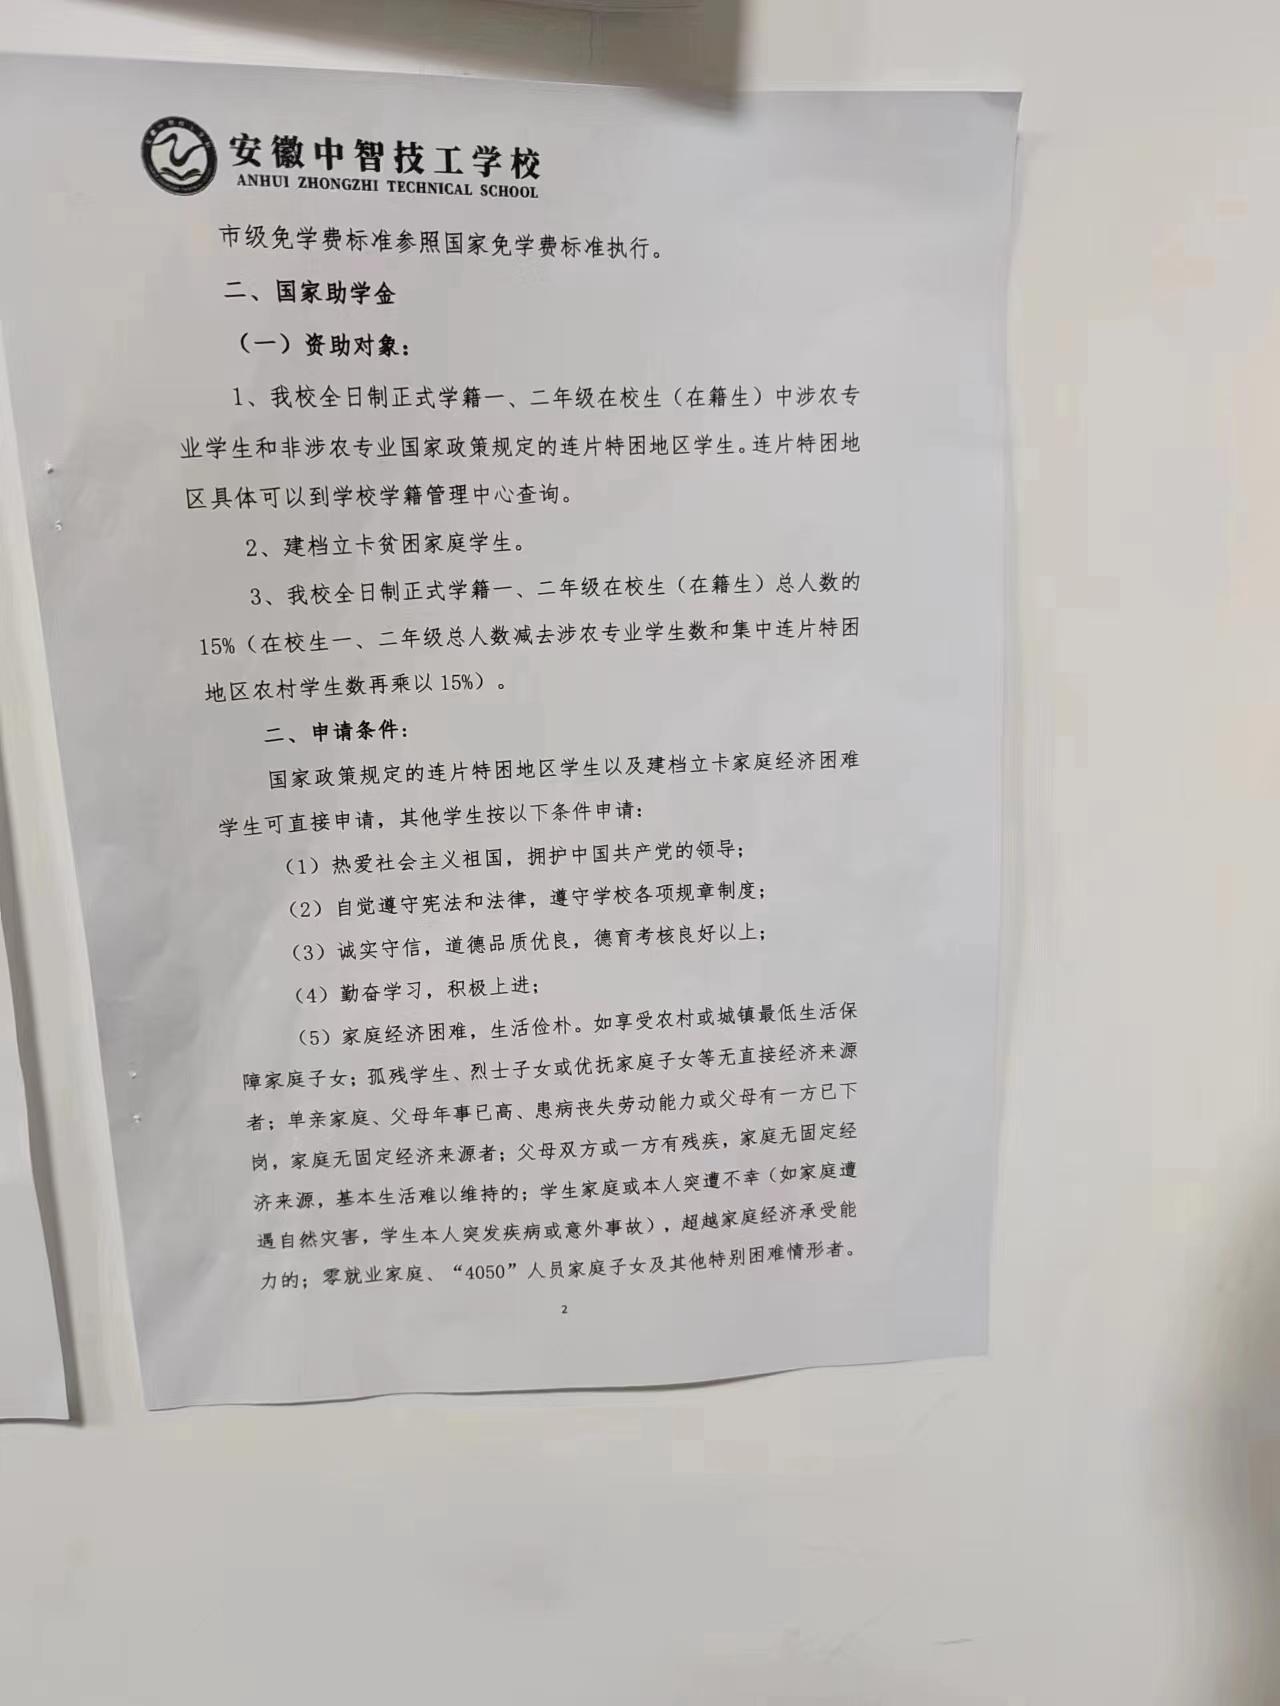 安徽中智技工学校
ANHUI ZHONGZHI TECHNICAL SCHOOL
市级免学费标准参照国家免学费标准执行。
二、国家助学金
（一）资助对象：
1、我校全日制正式学籍一、二年级在校生（在籍生）中涉农专
业学生和非涉农专业国家政策规定的连片特困地区学生。连片特困地
区具体可以到学校学籍管理中心查询。
2、建档立卡贫困家庭学生。
3、我校全日制正式学籍一、二年级在校生（在籍生）总人数的
15%（在校生一、二年级总人数减去涉农专业学生数和集中连片特困
地区农村学生数再乘以 15%）。
二、申请条件：
国家政策规定的连片特困地区学生以及建档立卡家庭经济困难
学生可直接申请，其他学生按以下条件申请：
（1）热爱社会主义祖国，拥护中国共产党的领导；
（2）自觉遵守宪法和法律，遵守学校各项规章制度；
（3）诚实守信，道德品质优良，德育考核良好以上；
（4）勤奋学习，积极上进；
（5）家庭经济困难，生活俭朴。如享受农村或城镇最低生活保
障家庭子女；孤残学生、烈士子女或优抚家庭子女等无直接经济来源
者；单亲家庭、父母年事已高、患病丧失劳动能力或父母有一方已下
岗，家庭无固定经济来源者；父母双方或一方有残疾，家庭无固定经
济来源，基本生活难以维持的；学生家庭或本人突遭不幸（如家庭遭
遇自然灾害，学生本人突发疾病或意外事故），超越家庭经济承受能
力的；零就业家庭、“4050”人员家庭子女及其他特别困难情形者。
2